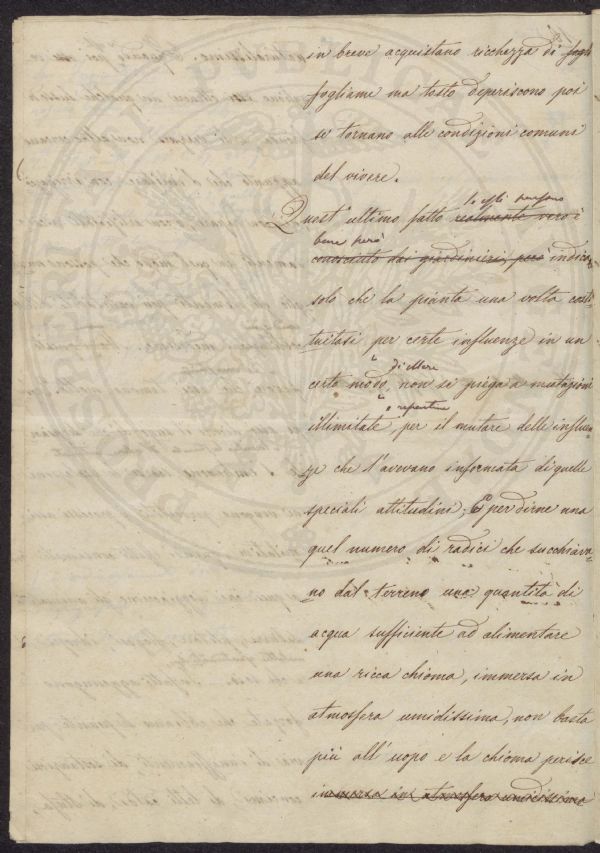 in breve acquistano ricchezza di fogli
fogliame ma tosto deperiscono poi
se tornano alle condizioni comuni
del vivere.
Quest' ultimo fatto realmente vero è
bene però
conosciuto dai giardinieri, però indica
solo che la pianta una volta costi
tuitasi per certe influenze in un
di essere
certo modo, non si piega a mutazioni
e repentine
illimitate, per il mutare delle influen
ze che l'avevano informata di quelle
speciali attitudini; E per dirne una
quel numero di radici che succhiava
no dal terreno una quantità di
acqua sufficiente ad alimentare
una ricca chioma, immersa in
atmosfera umidissima, non basta
più all'uopo e la chioma perisce
immersa in atmosfera umidissima